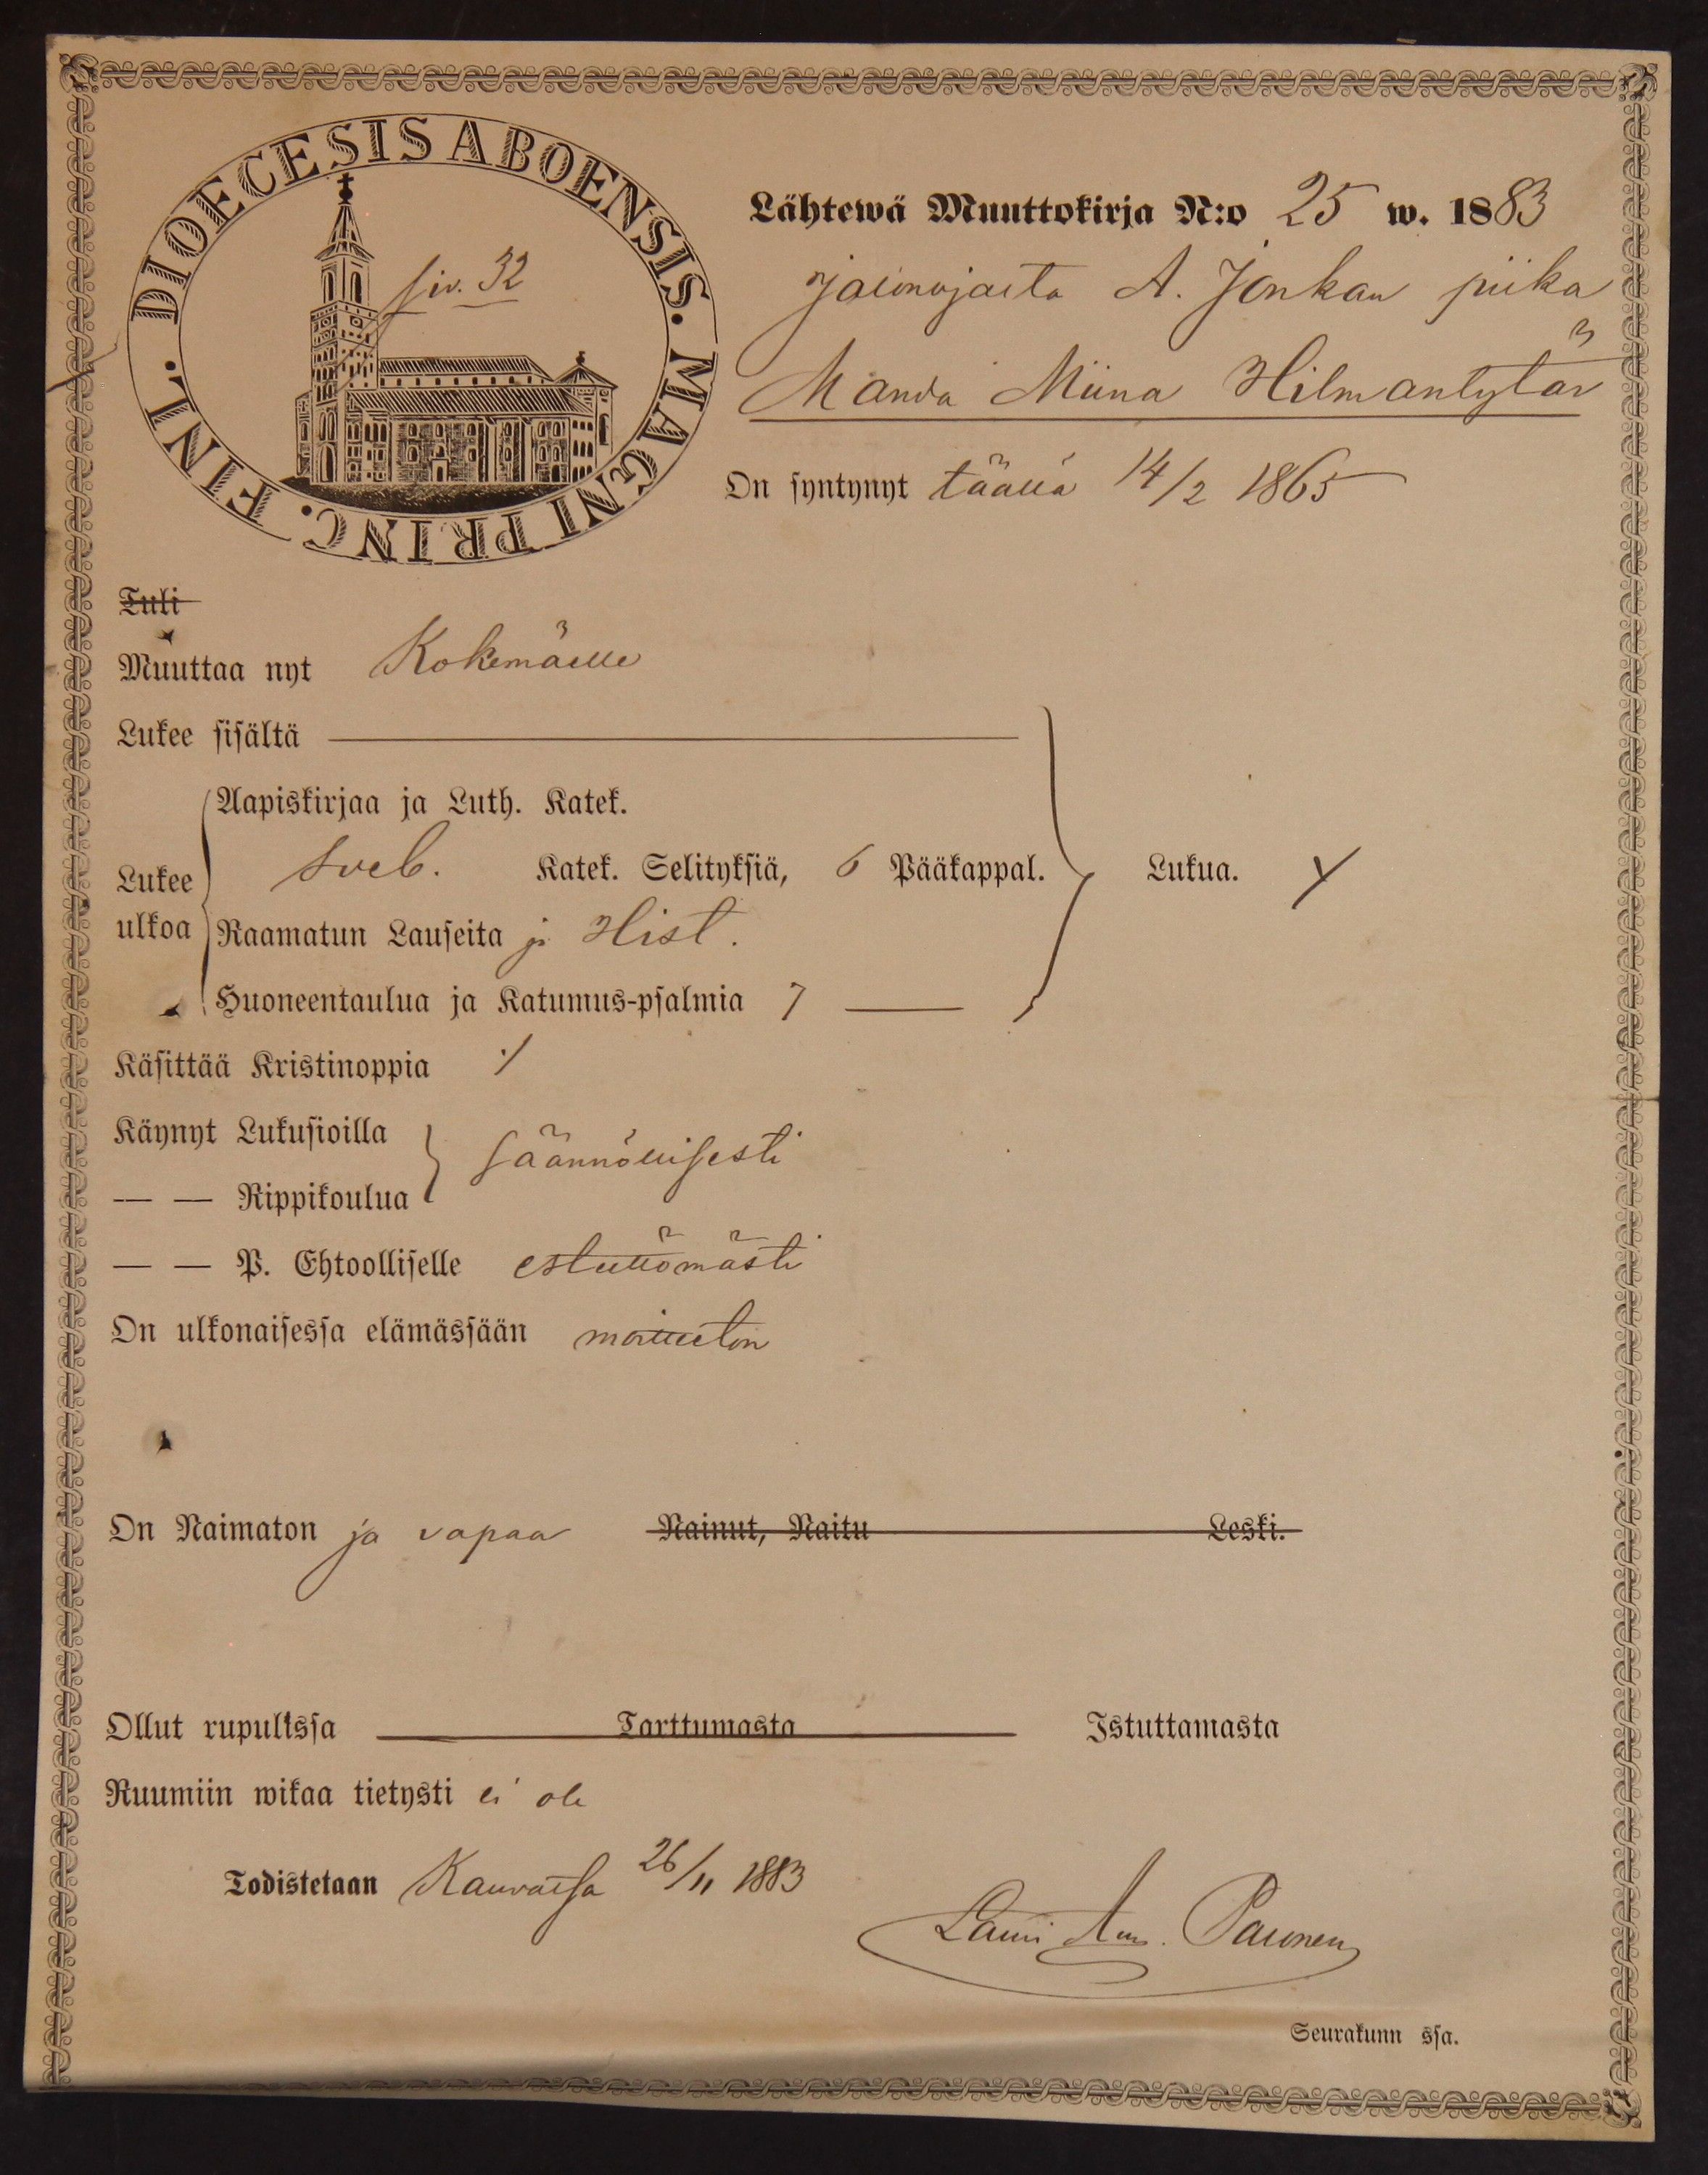 DIOECESIS ABOENSIS. MAGNI PRINC. FINL.
siv. 32
Lähtewä Muuttokirja N:o 25 w. 1883
A. Jonkan piika
Manda Miina Hilmantytär
On syntynyt täällä 14/2 1865
Tuli
Muuttaa nyt Kokemäelle
Lukee sisältä
Aapiskirjaa ja Luth. Katek.
Lukee ulkoa
Sveb. Katek. Selityksiä, 6 Pääkappal.
Lukua.
Raamatun Lauseita ja Hist.
Huoneentaulua ja Katumus-psalmia 7
Käsittää Kristinoppia
Käynyt Lukusioilla
säännöllisesti
— — Rippikoulua
— — P. Ehtoolliselle esteettömästi
On ulkonaisessa elämässään moitteeton
On Naimaton ja vapaa Nainut, Naitu Leski.
Ollut rupulissa Tarttumasta Istuttamasta
Ruumiin wikaa tietysti ei ole
Todistetaan Kauvatsa 26/11 1883
Lauri Aug. Paunonen
Seurakunn ssa.